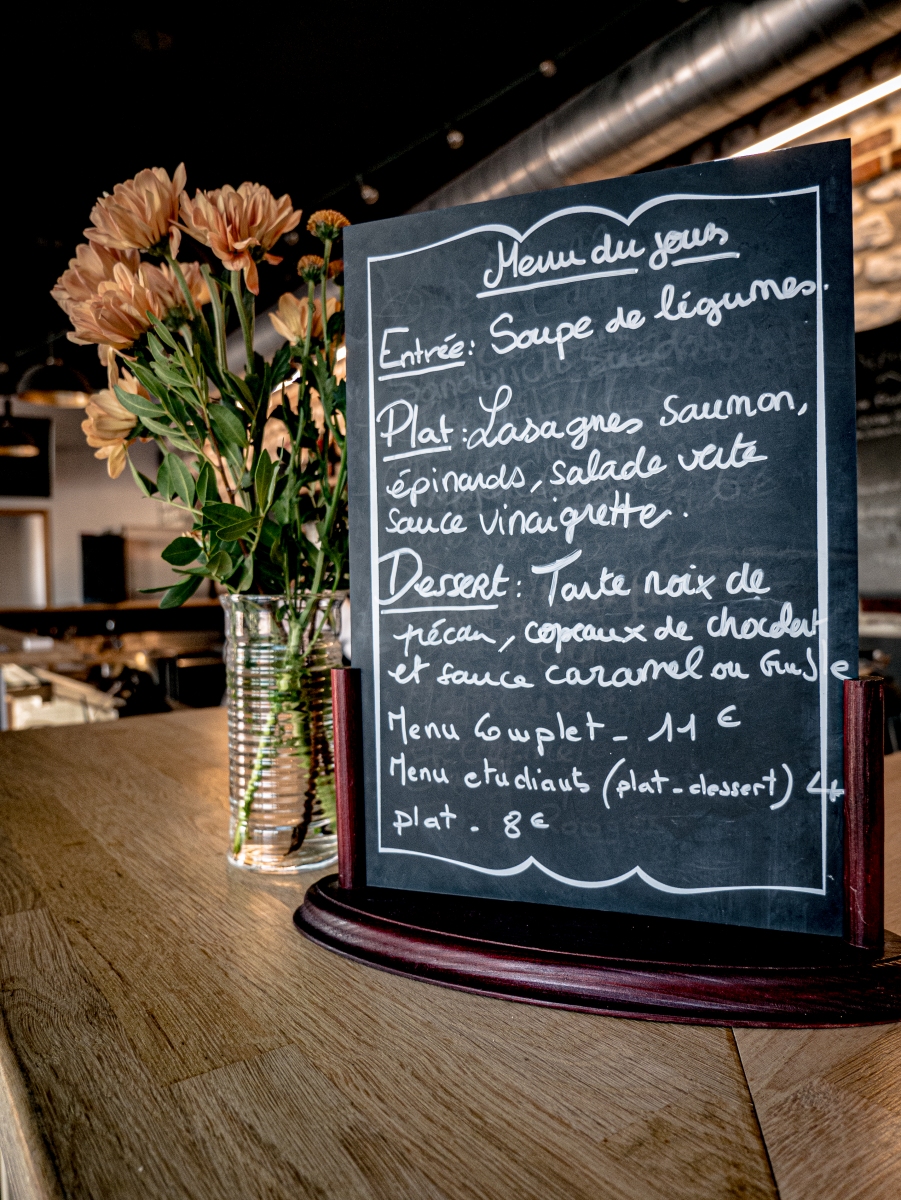 Menu du jour
Entrée: Soupe de légumes.
Plat: Lasagnes Saumon,
épinards, salade verte
sauce vinaigrette.
Dessert: Tarte noix de
pécan, copeaux de chocolat
et sauce caramel ou
Menu Complet - 11 €
Menu etudiants (plat-dessert)
plat. 8€